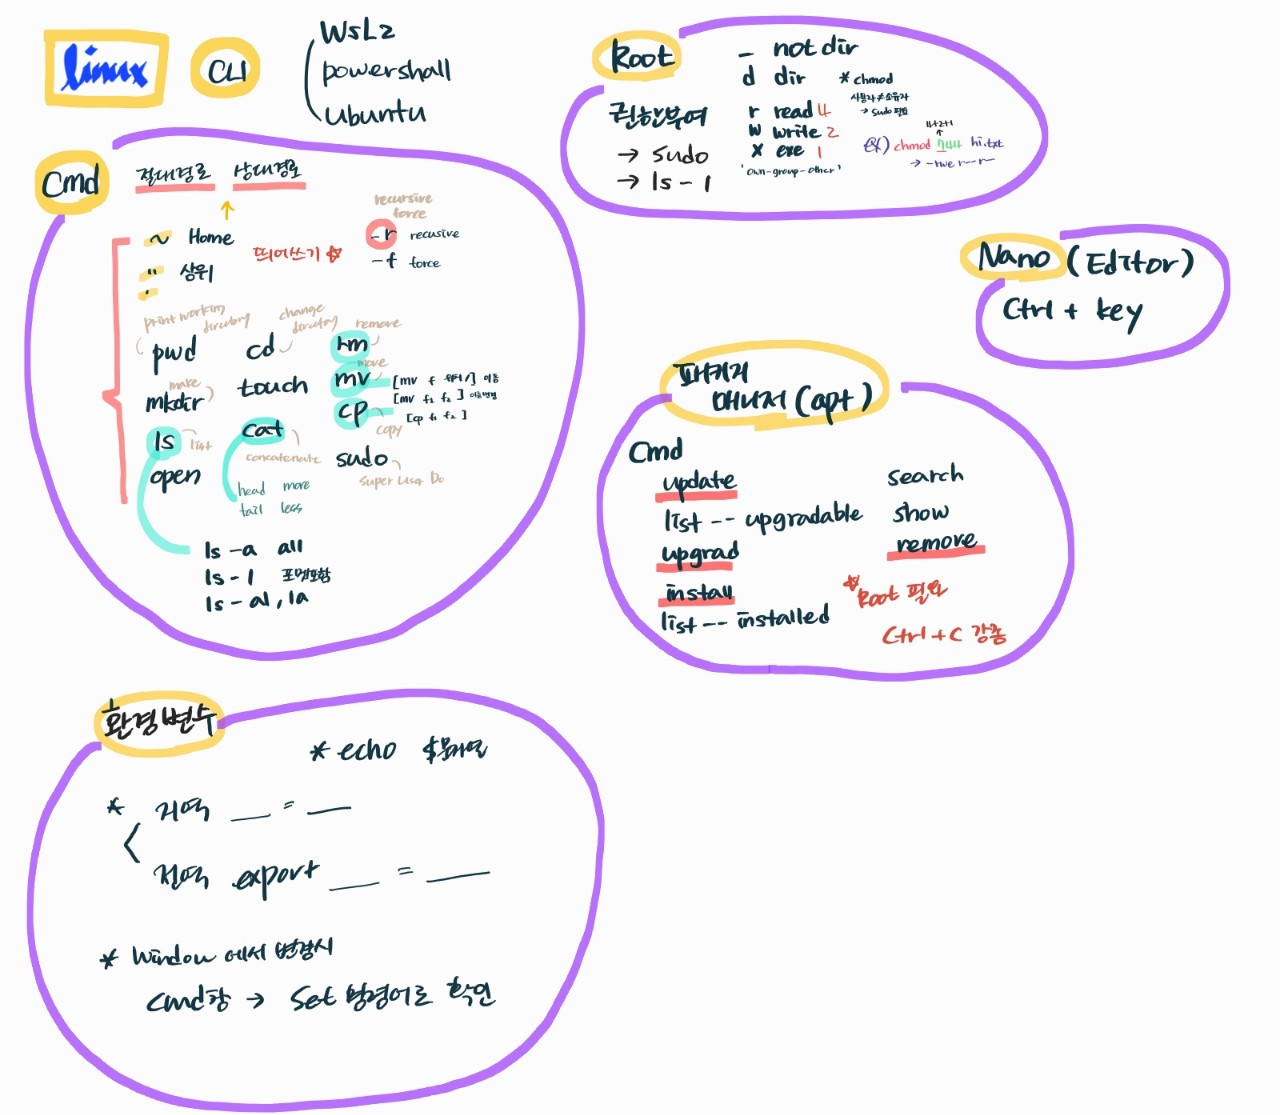 linux
CLI
WSL2
powershall
Ubuntu
Cmd
절대경로 상대경로
~ Home
띄어쓰기
.. 상위
.
recursive
force
-r recusive
-f force
print working
directory
change
directory
remove
pwd cd rm
make
move
mkdir touch mv
[mv f 위치/] 이동
[mv f₁ f₂]
cp [cp f₁ f₂]
copy
ls list
cat
concatenate
open
sudo
super user Do
head more
tail less
ls -a all
ls -l 포맷포함
ls -al, la
Root
권한부여
→ sudo
→ ls -l
_ not dir
d dir
r read 4
w write 2
x exe 1
'own-group-other'
* chmod
사용자≠소유자
→ sudo 필요
4+2+1
↑
ex) chmod 744 hi.txt
→ -rwe r--r--
Nano (Editor)
Ctrl + key
패키지
매니저 (apt)
Cmd
update
list -- upgradable
upgrad
install
list -- installed
search
show
remove
Root 필요
Ctrl + C 강종
환경변수
* echo $문자열
* 지역 __ = __
전역 export __ = __
* Window 에서 변경시
cmd창 → set 명령어로 확인